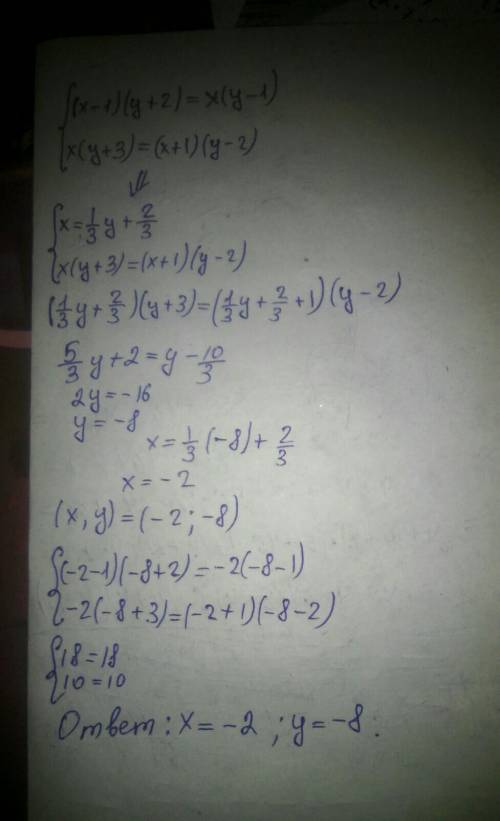 {(x-1)(y+2)=x(y-1)
{x(y+3)=(x+1)(y-2)
⇓
{x=1/3 y+2/3
{x(y+3)=(x+1)(y-2)
(1/3 y+2/3)(y+3)=(1/3 y+2/3+1)(y-2)
5/3 y+2=y-10/3
2y=-16
y=-8
x=1/3 (-8)+2/3
x=-2
(x,y)=(-2;-8)
{(-2-1)(-8+2)=-2(-8-1)
{-2(-8+3)=(-2+1)(-8-2)
{18=18
{10=10
Ответ: x=-2; y=-8.